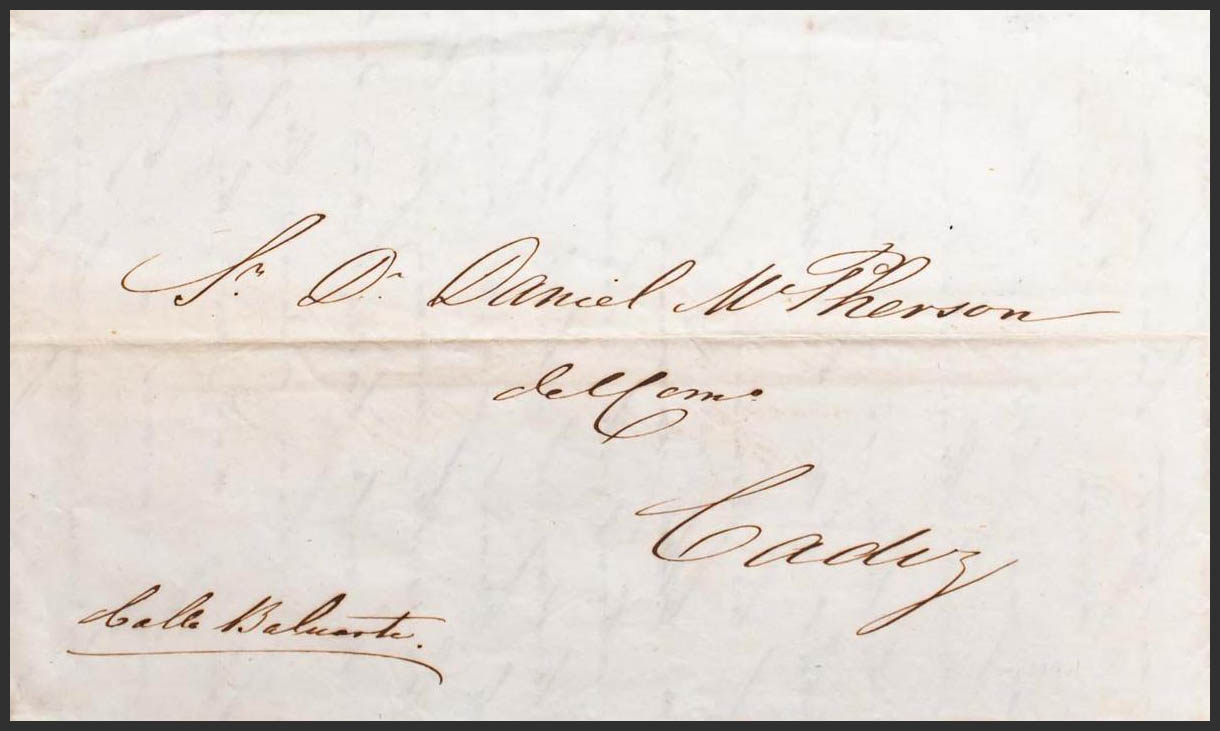 Sr. Dn. Daniel McPherson
del Como
Cadiz
Calle Baluarte.